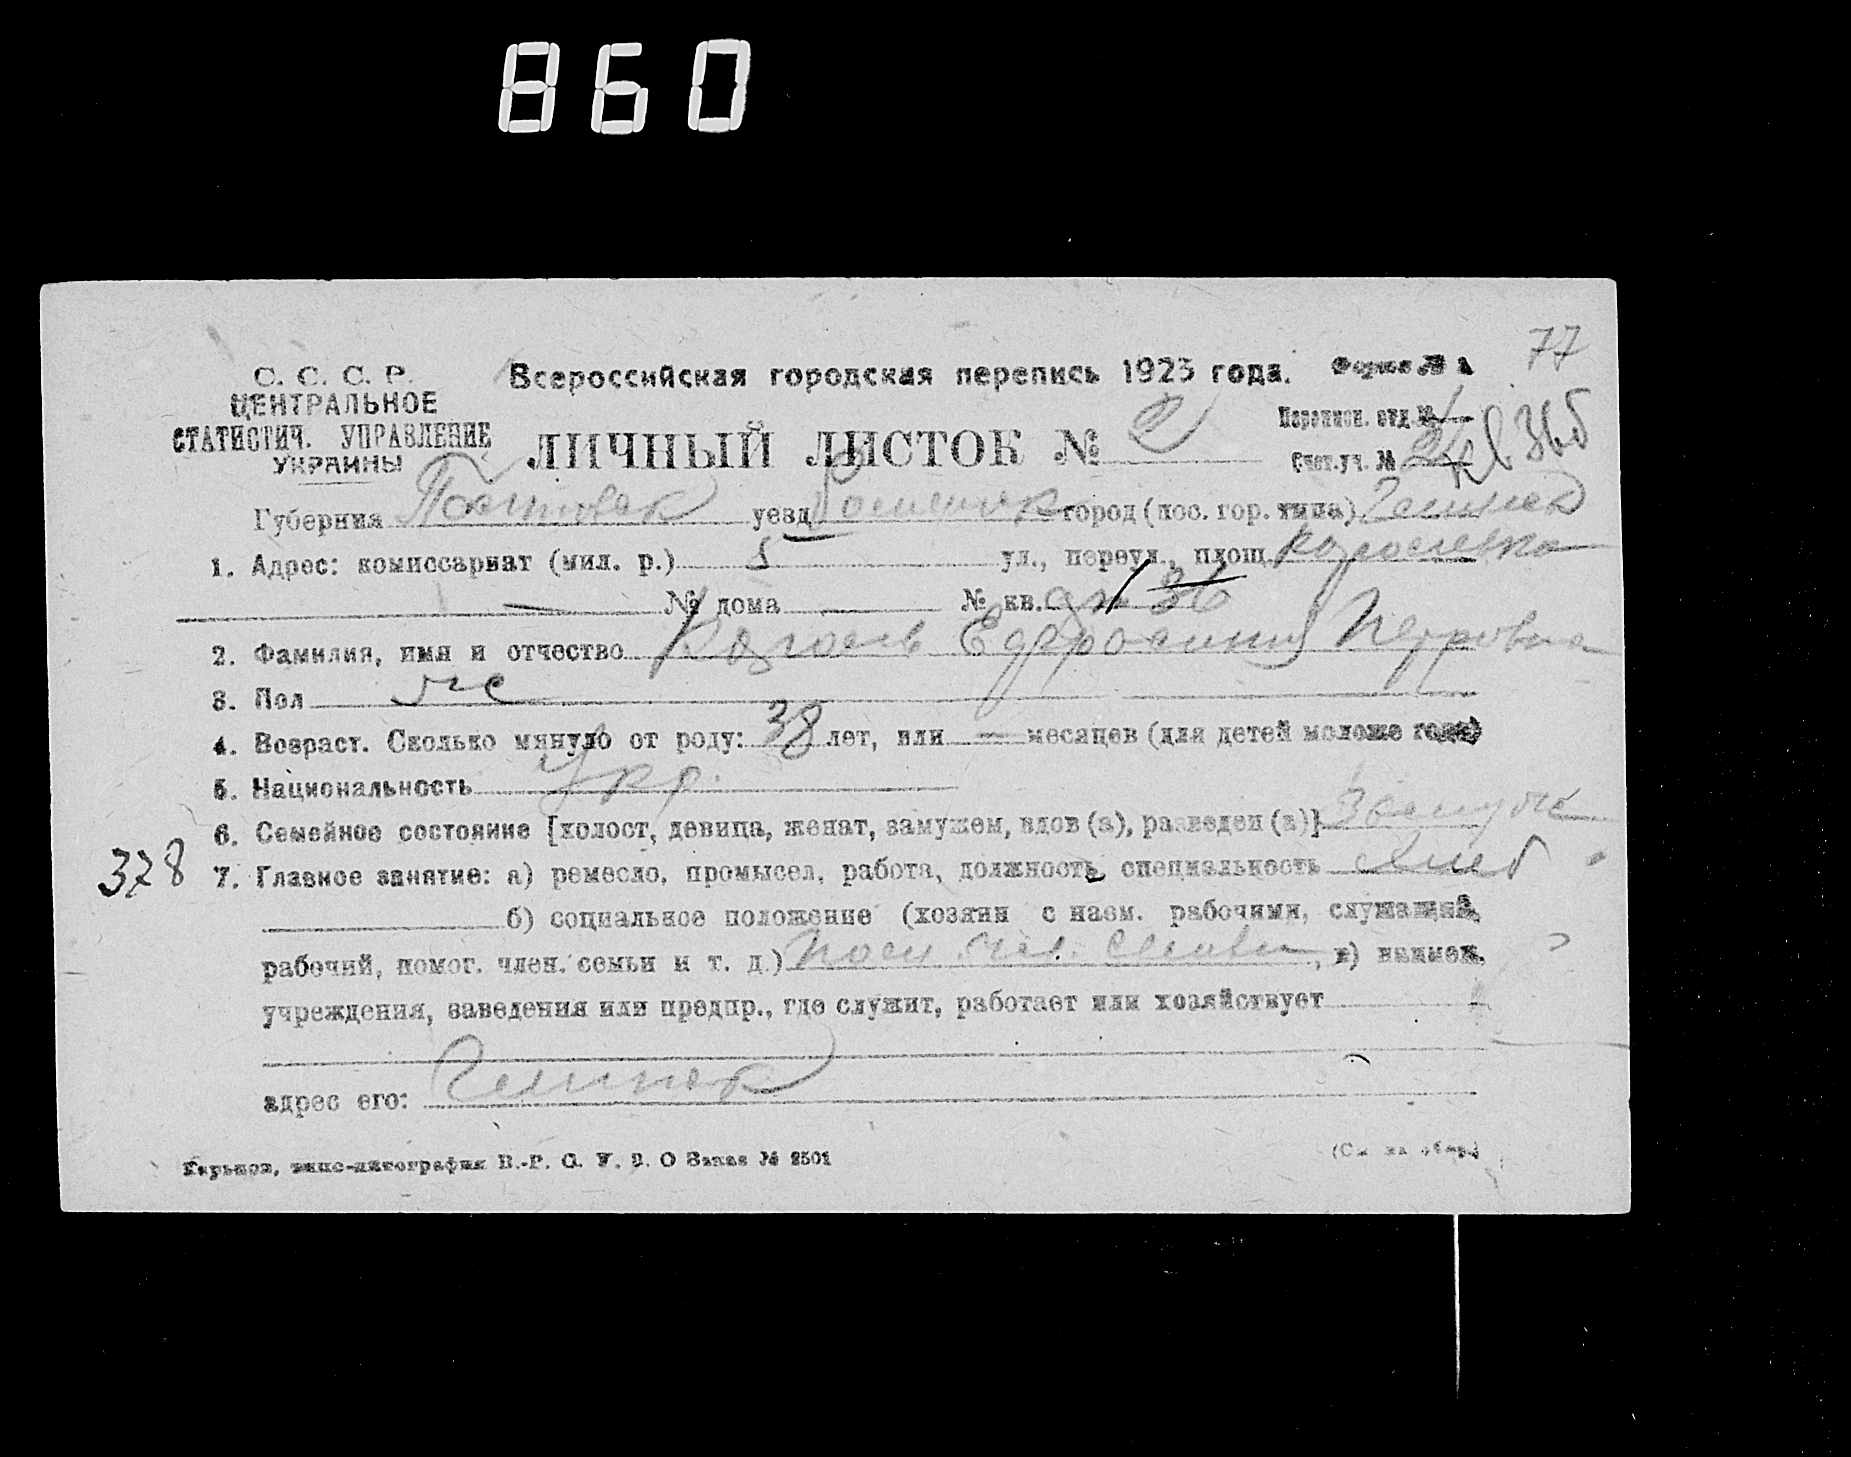 860
77
С. С. С. Р.
ЦЕНТРАЛЬНОЕ
СТАТИСТИЧ. УПРАВЛЕНИЕ
УКРАИНЫ
Всероссийская городская перепись 1923 года. Форма № 1
ЛИЧНЫЙ ЛИСТОК № 2
Переписн. отд. №
Счет. уч. №
36б
Губерния Полтавск уезд Роменск город (пос. гор. типа)
1. Адрес: комиссариат (мил. р.) 5 ул., переул., площ.
— № дома — № кв. 36
2. Фамилия, имя и отчество Ефросиния Петровна
3. Пол ж
4. Возраст. Сколько минуло от роду: 38 лет, или — месяцев (для детей моложе года)
5. Национальность Укр.
6. Семейное состояние [холост, девица, женат, замужем, вдов (а), разведен (а)] Замуж
378
7. Главное занятие: а) ремесло, промысел, работа, должность, специальность Хлеб
б) социальное положение (хозяин с наем. рабочими, служащий,
рабочий, помог. член. семьи и т. д.) Пом. чл. семьи, в) наимен.
учреждения, заведения или предпр., где служит, работает или хозяйствует
адрес его:
Харьков, типо-литография В.-Р. С. У. В. О Заказ № 2501
(См. на обор.)